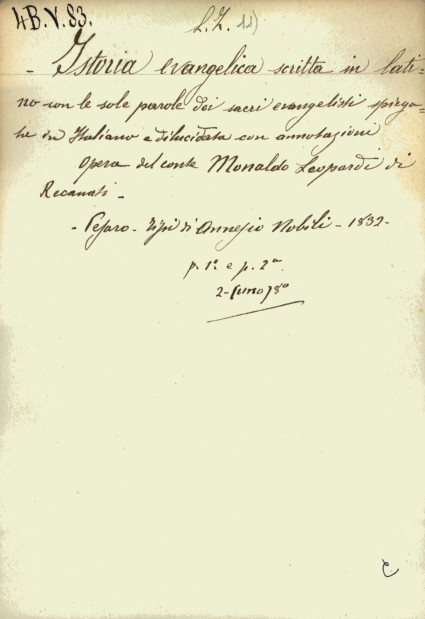 4B.V.83.
L.Z. 11)
- Istoria evangelica scritta in lati-
no con le sole parole dei sacri evangelisti spiega-
te in Italiano e dilucidata con annotazioni
Opera del conte Monaldo Leopardi di
Recanati -
- Pesaro - Tipi di Annesio Nobili - 1832 -
p. 1ª e p. 2ª
2 - (uno) 8º
C